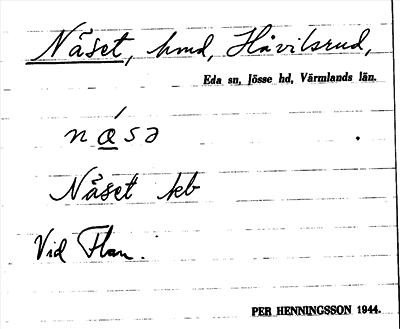 Näset, hmd, Håvilsrud,
Eda sn, Jösse hd, Värmlands län.
n á̱ s ə
Näset kb
Vid Flan.
PER HENNINGSSON 1944.